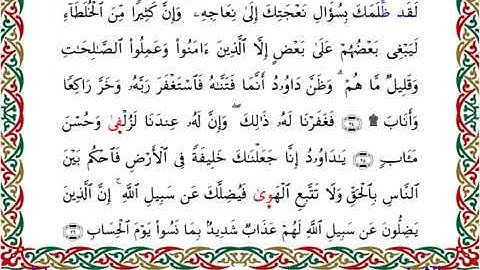 لَقَد ظَّلَمَكَ بِسُؤَالِ نَعْجَتِكَ إِلَىٰ نِعَاجِهِۦ وَإِنَّ كَثِيرًا مِّنَ ٱلْخُلَطَآءِ
لَيَبْغِى بَعْضُهُمْ عَلَىٰ بَعْضٍ إِلَّا ٱلَّذِينَ ءَامَنُوا۟ وَعَمِلُوا۟ ٱلصَّـٰلِحَـٰتِ
وَقَلِيلٌ مَّا هُمْ ۗ وَظَنَّ دَاوُۥدُ أَنَّمَا فَتَنَّـٰهُ فَٱسْتَغْفَرَ رَبَّهُۥ وَخَرَّ رَاكِعًا
وَأَنَابَ ۩ ﴿٢٤﴾ فَغَفَرْنَا لَهُۥ ذَٰلِكَ ۖ وَإِنَّ لَهُۥ عِندَنَا لَزُلْفَىٰ وَحُسْنَ
مَـَٔابٍ ﴿٢٥﴾ يَـٰدَاوُۥدُ إِنَّا جَعَلْنَـٰكَ خَلِيفَةً فِى ٱلْأَرْضِ فَٱحْكُم بَيْنَ
ٱلنَّاسِ بِٱلْحَقِّ وَلَا تَتَّبِعِ ٱلْهَوَىٰ فَيُضِلَّكَ عَن سَبِيلِ ٱللَّهِ ۚ إِنَّ ٱلَّذِينَ
يَضِلُّونَ عَن سَبِيلِ ٱللَّهِ لَهُمْ عَذَابٌ شَدِيدٌۢ بِمَا نَسُوا۟ يَوْمَ ٱلْحِسَابِ ﴿٢٦﴾